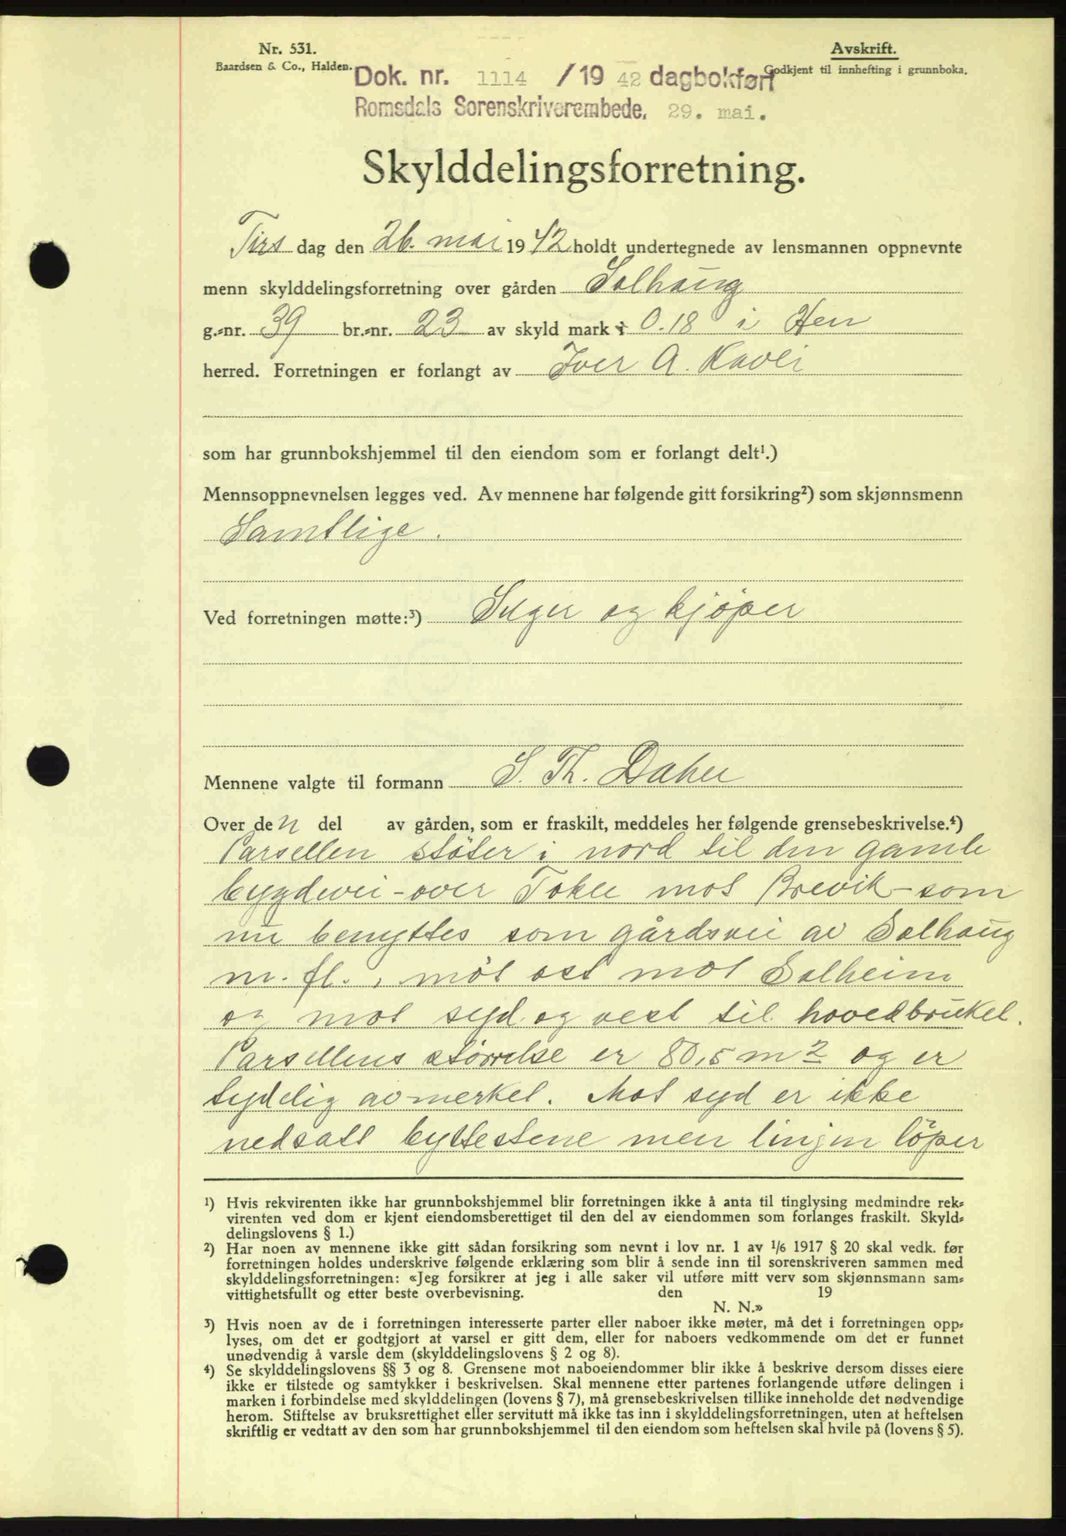 Nr. 531.
Baardsen & Co., Halden.
Avskrift.
Godkjent til innhefting i grunnboka.
Dok. nr. 1114 /19 42 dagbokført
Romsdals Sorenskriverembede, 29. mai.
Skylddelingsforretning.
Tirs dag den 26. mai 1942 holdt undertegnede av lensmannen oppnevnte
menn skylddelingsforretning over gården Solhaug
g.-nr. 39 br.-nr. 23 av skyld mark 0.18 i Hen
herred. Forretningen er forlangt av Iver A. Kavli
som har grunnbokshjemmel til den eiendom som er forlangt delt¹.)
Mennsoppnevnelsen legges ved. Av mennene har følgende gitt forsikring²) som skjønnsmenn
Samtlige.
Ved forretningen møtte:³) Selger og kjøper
Mennene valgte til formann S. Th. Dahle
Over den del av gården, som er fraskilt, meddeles her følgende grensebeskrivelse.⁴)
Parsellen støter i nord til den gamle
bygdevei - over Tokle mot Brevik - som
nu benyttes som gårdsvei av Solhaug
m. fl., mot ost mot Solheim
og mot syd og vest til hovedbruket.
Parsellens størrelse er 80,5 m² og er
tydelig avmerket. Mot syd er ikke
nedsatt byttestene men linjen løper
¹) Hvis rekvirenten ikke har grunnbokshjemmel blir forretningen ikke å anta til tinglysing medmindre rek-
virenten ved dom er kjent eiendomsberettiget til den del av eiendommen som forlanges fraskilt. Skyld-
delingslovens § 1.)
²) Har noen av mennene ikke gitt sådan forsikring som nevnt i lov nr. 1 av 1/6 1917 § 20 skal vedk. før
forretningen holdes underskrive følgende erklæring som blir å sende inn til sorenskriveren sammen med
skylddelingsforretningen: «Jeg forsikrer at jeg i alle saker vil utføre mitt verv som skjønnsmann sam-
vittighetsfullt og etter beste overbevisning. den 19
N. N.»
³) Hvis noen av de i forretningen interesserte parter eller naboer ikke møter, må det i forretningen opp-
lyses, om det er godtgjort at varsel er gitt dem, eller for naboers vedkommende om det er funnet
unødvendig å varsle dem (skylddelingslovens § 2 og 8).
⁴) Se skylddelingslovens §§ 3 og 8. Grensene mot naboeiendommer blir ikke å beskrive dersom disses eiere
ikke er tilstede og samtykker i beskrivelsen. Skal mennene etter partenes forlangende utføre delingen i
marken i forbindelse med skylddelingen (lovens § 7), må grensebeskrivelsen tillike inneholde det nødvendige
herom. Stiftelse av bruksrettighet eller servitutt må ikke tas inn i skylddelingsforretningen, uten at heftelsen
skriftlig er vedtatt av den som har grunnbokshjemmel til den eiendom som heftelsen skal hvile på (lovens § 5).